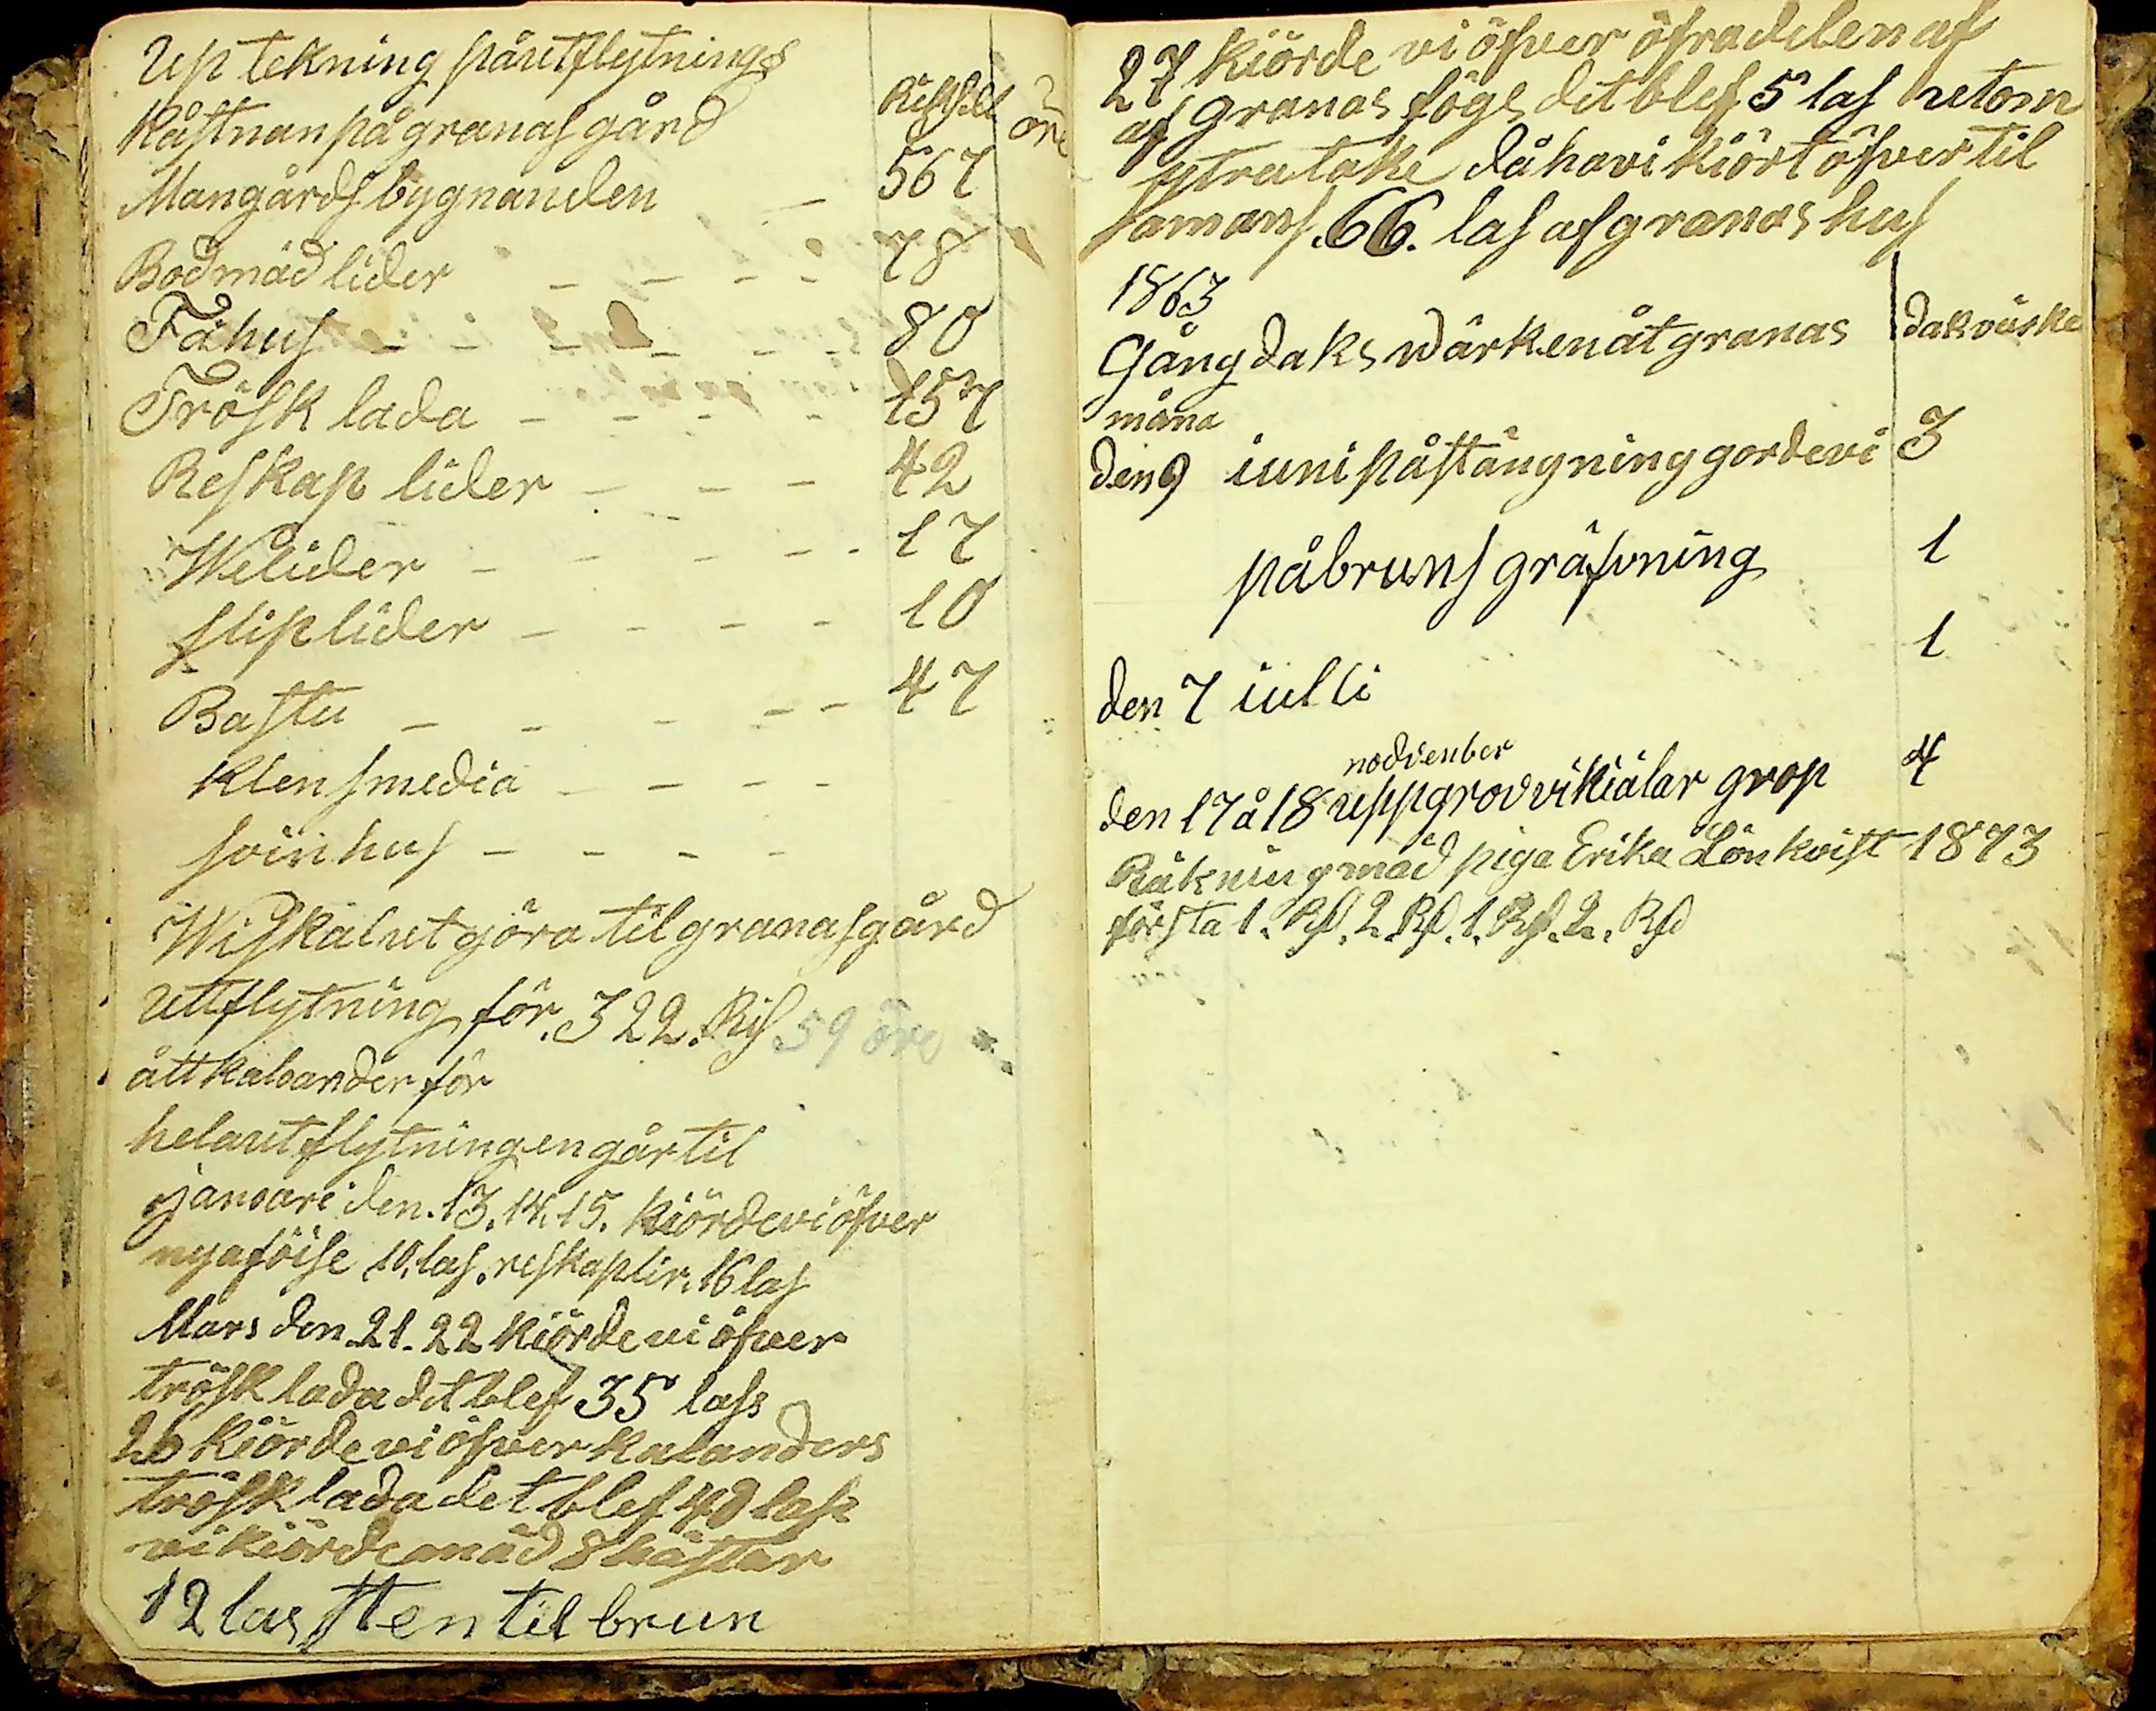 Uptekning påutflytnings
kåstnan på granas gård Riksdl öre
Mangårds bygnanden — 567
Bod mäd lider — — — — 78
Fähus — — — — — 80
Trösk lada — — — — 157
Reskap lider — — — 42
Welider — — — — - 17
sliplider — — — — 10
Bastu — — — — - 47
klensmedia — — — —
svinhus — — — —
Wi skal ut göra til granas gård
uttflytning för. 322. Ris 59 öre
ått kalander för
hela utflytningen går til
januari den. 13. 14. 15. kiörde vi öfver
nya föise 10. las. reskaplir. 16 las
Mars den 21. 22 kiörde vi öfver
trösk lada det blef 35 lass
26 kiörde vi öfver kalanders
trösk lada det blef 40 lass
vi kiörde mäd 8 hästar
12 las sten til brun
27 kiörde vi öfver öfra delen af
af granas fögs det blef 5 las utom
ytra take då havi kiört öfver til
samans. 66. las af granas hus
1863
Gång daks wärken åt granas dakväske
måna
den 9 iuni på stängning gorde vi 3
på bruns gräfvning 1
1
den 7 iulli
nodvenber
den 17 å 18 uppgrov vi kiälar grop 4
Räkning mäd piga Erika Lönkvist 1873
första 1. Rd. 2. Rd. 1. Rd. 2. Rd